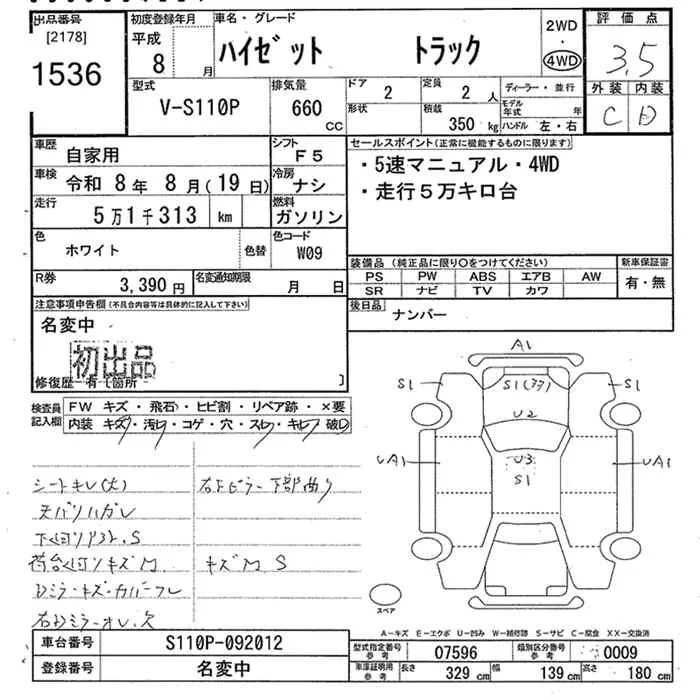 出品番号
[2178]
1536
初度登録年月
平成
8 月
車名・グレード
ハイゼット トラック
2WD
・
4WD
評価点
3.5
外装 内装
C D
型式
V-S110P
排気量
660 CC
ドア 2
定員 2 人
ディーラー・並行
形状
積載 350 kg
モデル年式 年
ハンドル 左・右
車歴 自家用
シフト F5
車検 令和 8年 8月(19日)
冷房 ナシ
走行 5万1千313 km
燃料 ガソリン
色 ホワイト 色替
色コード W09
R券 3,390円
名変通知期限 月 日
セールスポイント(正常に機能するものに限ります)
・5速マニュアル・4WD
・走行5万キロ台
装備品 (純正品に限り〇をつけてください)
新車保証書
PS PW ABS エアB AW
SR ナビ TV カワ
有・無
後日品
ナンバー
注意事項申告欄(不具合内容等は具体的に記入して下さい)
名変中
初出品
修復歴 有 [箇所 ]
検査員記入欄
FW キズ・飛石・ヒビ割・リペア跡・×要
内装 キズ・汚レ・コゲ・穴・スレ・キレ・破レ
シートキレ(大)
天バリハガレ
S
荷台 キズM
キズM S
A1
S1
S1
U2
U3
S1
UA1
UA1
スペア
A-キズ E-エクボ U-凹み W-補修跡 S-サビ C-腐食 XX-交換済
車台番号 S110P-092012
登録番号 名変中
型式指定番号参考 07596
類別区分番号参考 0009
車庫証明用参考 長さ 329 cm 幅 139 cm 高さ 180 cm